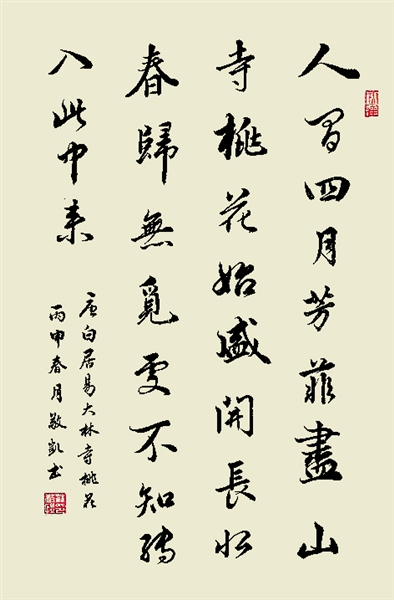 人間四月芳菲盡山
寺桃花始盛開長恨
春歸無覓處不知轉
入此中來
唐白居易大林寺桃花
丙申春月敬凱书